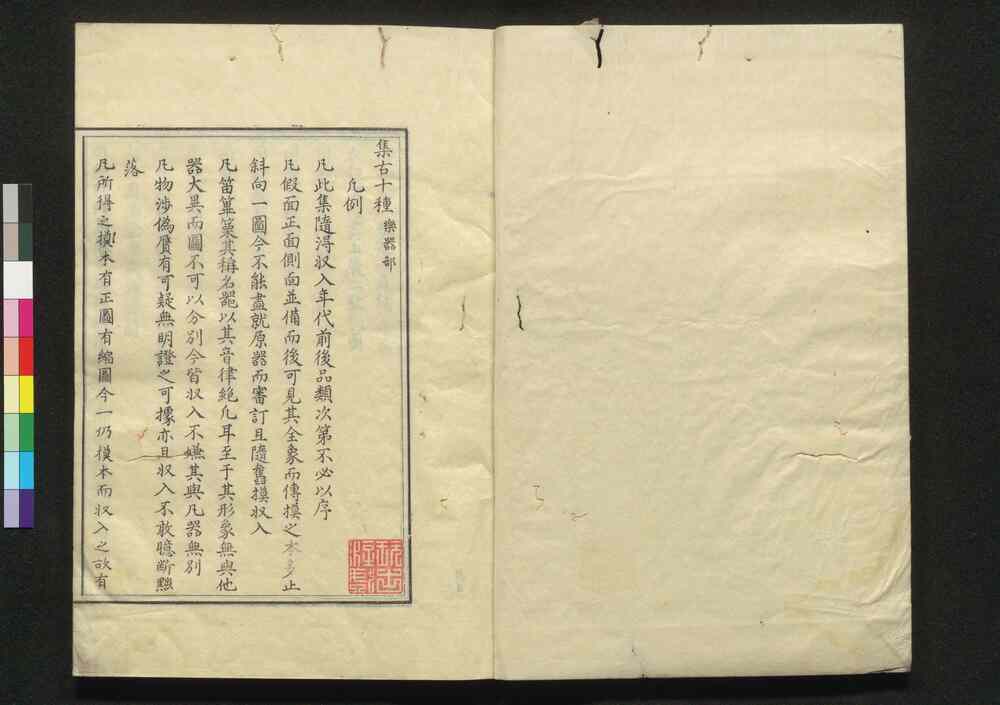 集古十種 樂器部
凡例
凡此集隨得収入年代前後品類次第不必以序
凡假面正面側面並備而後可見其全象而傳摸之本多止
斜向一圖今不能盡就原器而審訂且隨舊摸収入
凡笛篳篥其稱名器以其音律絶凡耳至于其形象無與他
器大異而圖不可以分別今皆収入不嫌其與凡器無別
凡物涉僞贋有可疑無明證之可據亦且収入不敢臆斷黜
落
凡所得之摸本有正圖有縮圖今一仍摸本而収入之故有